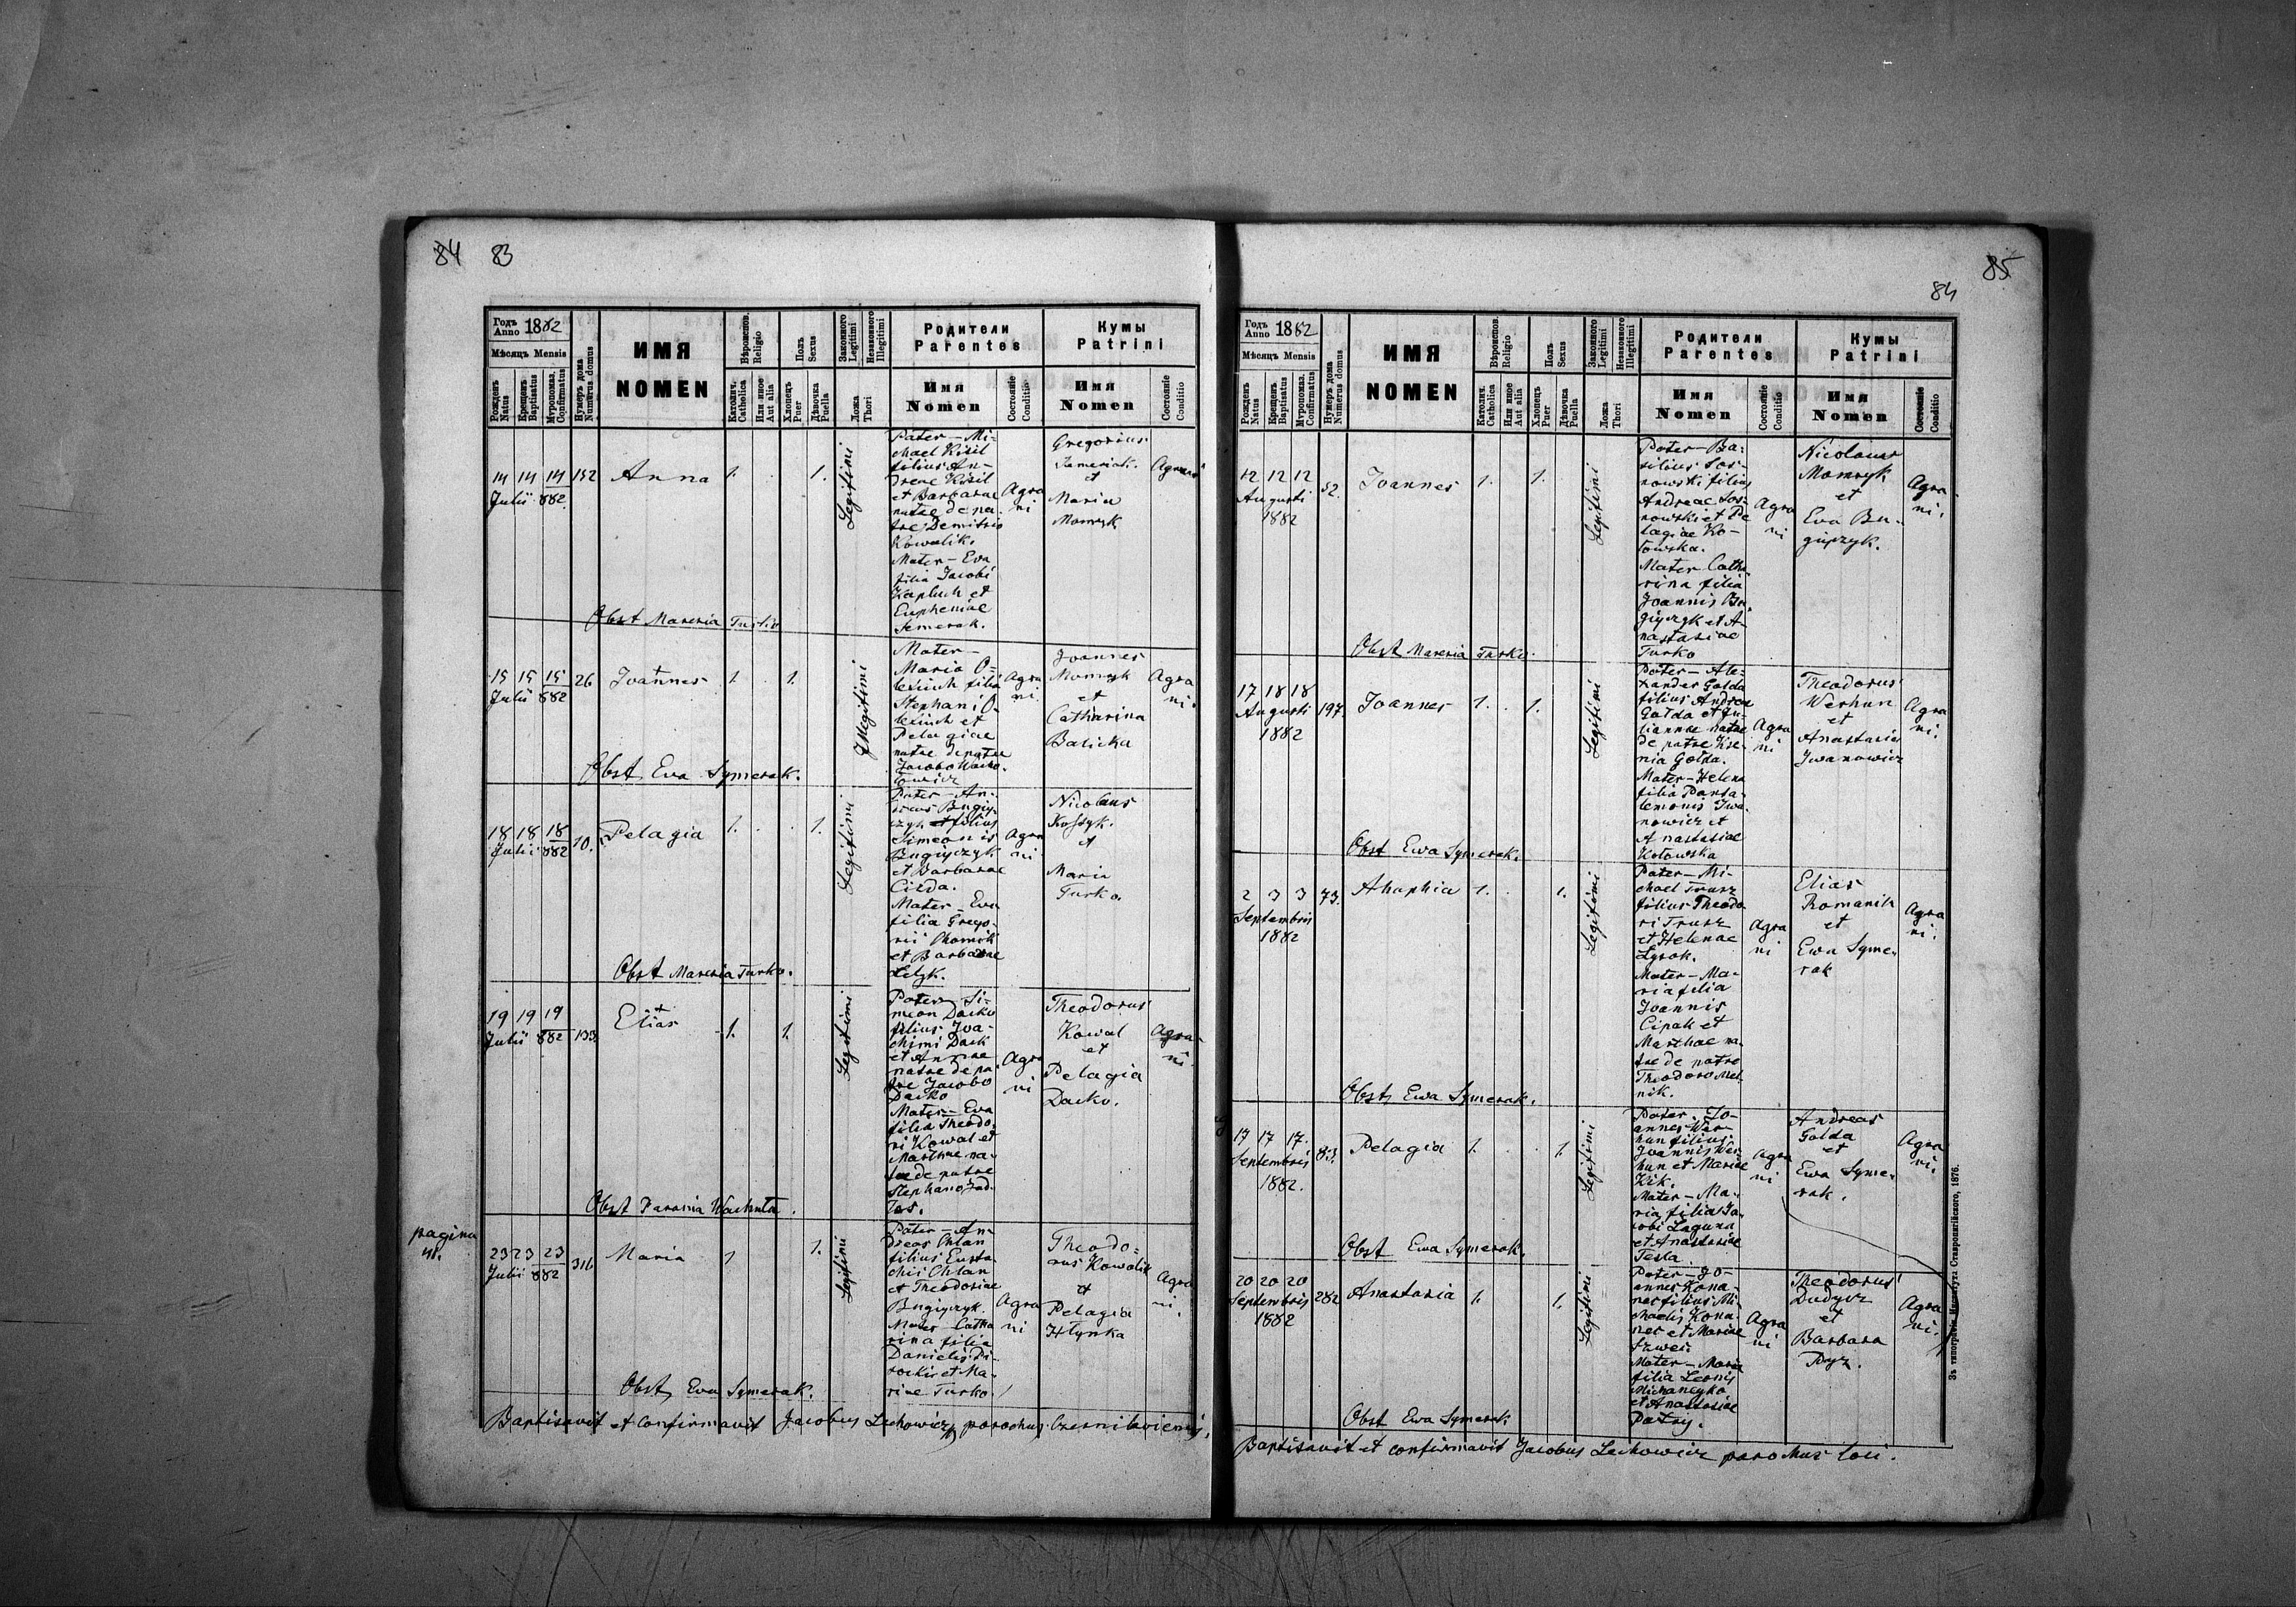 84 83
Годъ Anno 1882
Мѣсяцъ Mensis
Рожденъ Natus
Крещенъ Baptisatus
Мѵропомаз. Confirmatus
Нумеръ дома Numerus domus
ИМЯ
NOMEN
Вѣроиспов. Religio
Католич. Catholica
Или иное Aut alia
Полъ Sexus
Хлопець Puer
Дѣвочка Puella
Законного Legitimi
Незаконного Illegitimi
Ложа Thori
Родители
Parentes
Имя
Nomen
Состояніе Conditio
Кумы
Patrini
Имя
Nomen
Состояніе Conditio
14 14 14 152 Anna 1. 1.
Julii 882
Legitimi
Pater – Mi-
chael Kisil
filius An-
dreae Kisil
et Barbarae
natae de pa-
tre Demitrio
Kowalik.
Mater – Eva
filia Jacobi
Kapluch et
Eupheniae
Semerak.
Agra
ni
Gregorius
et
Maria
Momryk
Obst Mareria Turko
15 15 15 26 Joannes 1. 1.
Julii 882
Illegitimi
Mater –
Maria O-
lexiuch filia
Stephani O-
lexiuch et
Pelagiae
natae de patre
Agra
ni.
Joannes
Momryk
et
Catharina
Balicka
Agra
ni.
Obst Ewa Symerak.
18 18 18 10. Pelagia 1. 1.
Julii 882
Legitimi
Pater – An-
dreas Bugiy-
czyk filius
Simeonis
Bugiyczyk
et Barbarae
Cilda.
Mater – Eva
filia Grego-
rii Chomik
et Barbarae
Letyk.
Agra
ni
Nicolaus
Kostyk.
et
Maria
Turko.
Obst Mareria Turko.
19 19 19 133 Elias 1. 1.
Julii 882
Legitimi
Pater Si-
meon Dacko
filius Joa-
chimi Dack
et Annae
natae de pa-
tre Jacobo
Dacko
Mater – Eva
filia Theodo-
ri Kowal et
Marthae na-
tae de patre
Stephano
Agra
ni
Theodorus
Kowal
et
Pelagia
Dacko.
Agra-
ni.
Obst Parania Wachnta.
pagina
23 23 23 316 Maria 1 1.
Julii 882
Legitimi
Pater – An-
dreas Chlan
filius Eusta-
chii Chlan
et Theodosiae
Bugiyczyk.
Mater – Catha
rina filia
Danielis
et Ma-
riae Turko.
Agra
ni
Theodo-
rus Kowalik
et
Pelagia
Hlynka
Agra
ni.
Obst Ewa Symerak.
Baptisavit et confirmavit Jacobus Lechowicz parochus Czernilaviensis.
85
84
Годъ Anno 1882
Мѣсяцъ Mensis
Рожденъ Natus
Крещенъ Baptisatus
Мѵропомаз. Confirmatus
Нумеръ дома Numerus domus
ИМЯ
NOMEN
Вѣроиспов. Religio
Католич. Catholica
Или иное Aut alia
Полъ Sexus
Хлопець Puer
Дѣвочка Puella
Законного Legitimi
Незаконного Illegitimi
Ложа Thori
Родители
Parentes
Имя
Nomen
Состояніе Conditio
Кумы
Patrini
Имя
Nomen
Состояніе Conditio
12 12 12 52. Joannes 1. 1.
Augusti
1882
Legitimi
Pater – Ba-
silius Sos-
nowski filius
Andreae Sos-
nowski et Pe
lagiae Ko-
towska.
Mater Catha-
rina filia
Joannis Bu-
giyczyk et A-
nastasiae
Turko
Agra
ni
Nicolaus
Momryk
et
Eva Bu-
giyczyk.
Agra
ni.
Obst Mareria Turko.
17 18 18 197. Joannes 1. 1.
Augusti
1882
Legitimi
Pater – Ale-
xander Golda
filius Andrea
Golda et Ju-
liannae natae
de patre
Golda.
Mater – Helena
filia Panta-
lemonis Iwa-
nowicz et
Anastasiae
Kotowska
Agra
ni
Theodorus
Werhun
et
Anastasia
Iwanowicz
Agra
ni.
Obst Ewa Symerak.
2 3 3 73. Ahaphia 1. 1.
Septembris
1882
Legitimi
Pater – Mi-
chael Trusz
filius Theodo-
ri Trusz
et Helenae
Lysak.
Mater – Ma-
ria filia
Joannis
Cipak et
Marthae na-
tae de patre
Theodoro Mel-
nik.
Agra
ni
Elias
Romanik
et
Ewa Syme-
rak
Agra
ni.
Obst Ewa Symerak.
17 17 17. 83. Pelagia 1. 1.
Septembris
1882.
Legitimi
Pater. Jo-
annes Wer-
hun filius
Joannis Wer-
hun et Mariae
Kik.
Mater – Ma-
ria filia Ja-
cobi Laguna
et Anastasiae
Tesla.
Agra
ni
Andreas
Golda
et
Ewa Syme-
rak.
Agra
ni.
Obst Ewa Symerak.
20 20 20 282 Anastasia 1. 1.
Septembris
1882
Legitimi
Pater – Jo-
annes Kona-
nec filius Mi-
chaelis Kona-
nec et Mariae
Szwec.
Mater – Maria
filia Leonis
et Anastasiae
Agra
ni
Theodorus
Dudycz
et
Barbara
Pyz.
Agra
ni.
Obst Ewa Symerak
Baptisavit et confirmavit Jacobus Lechowicz parochus loci.
Зъ типографіи Института Ставропигійского, 1876.